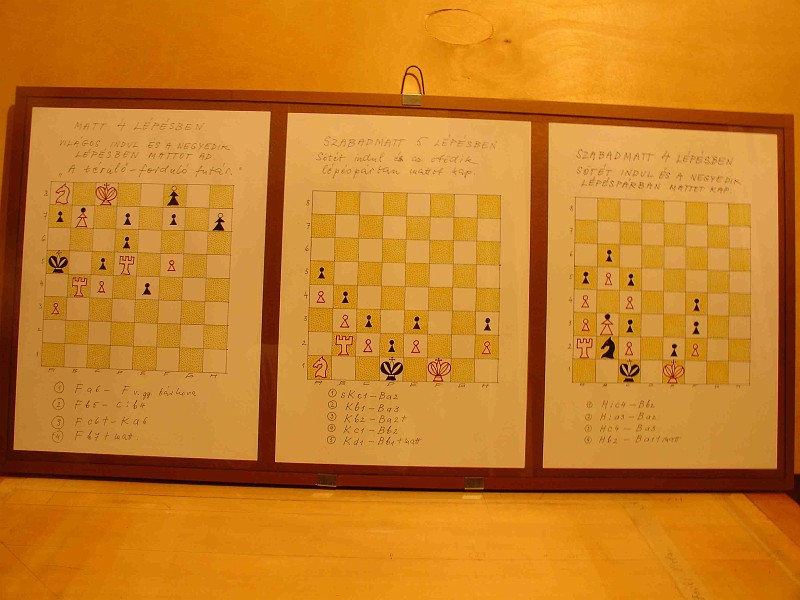 MATT 4 LÉPÉSBEN
VILÁGOS INDUL ÉS A NEGYEDIK
LÉPÉSBEN MATTOT AD.
"A térülő-forduló futár."
8
7
6
5
4
3
2
1
A B C D E F G H
① Fa6 - F vagy bárhova
② Fb5 - c:b4
③ Fc6+ - Ka6
④ Fb7 + matt
SZABADMATT 5 LÉPÉSBEN
Sötét indul és az ötödik
lépéspárban mattot kap.
8
7
6
5
4
3
2
1
A B C D E F G H
① sKc1 - Ba2
② Kb1 - Ba3
③ Kb2 - Ba2+
④ Kc1 - Bb2
⑤ Kd1 - Bb1+ matt
SZABADMATT 4 LÉPÉSBEN
SÖTÉT INDUL ÉS A NEGYEDIK
LÉPÉSPÁRBAN MATTOT KAP.
8
7
6
5
4
3
2
1
A B C D E F G H
① H:c4 - Bb2
② H:a3 - Ba2
③ Hc4 - Ba3
④ Hb2 - Ba1+ matt